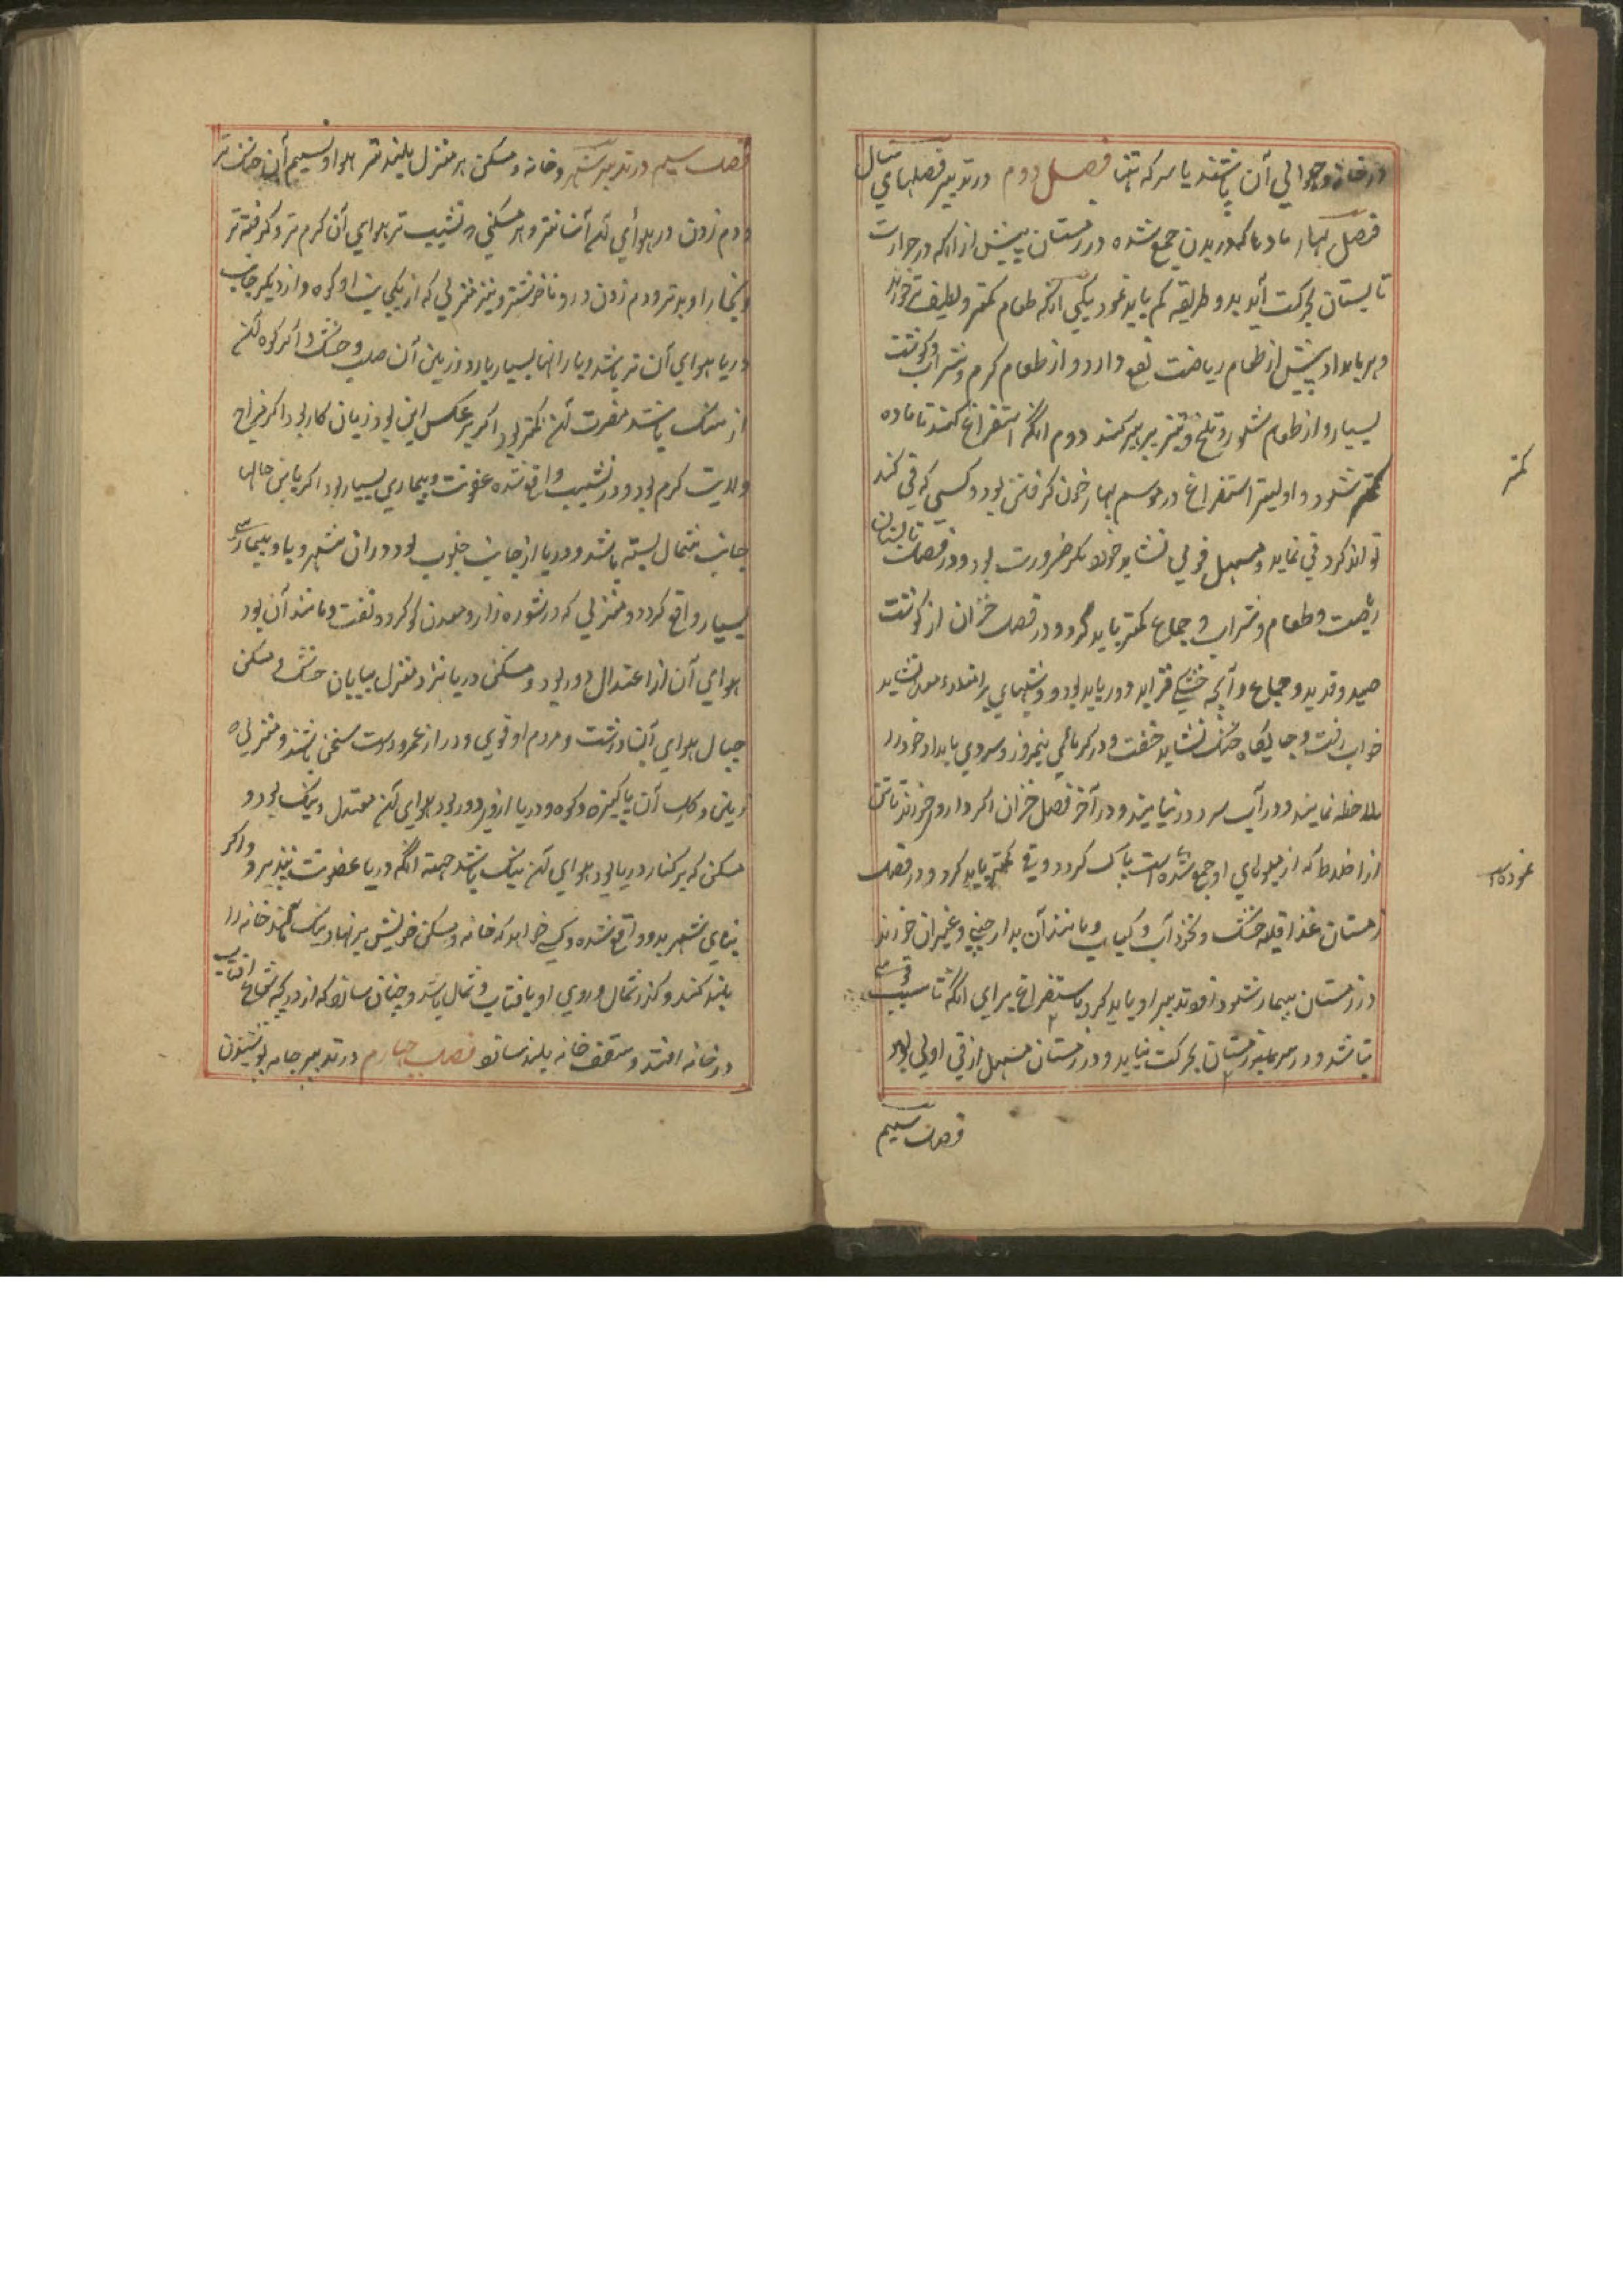 در خانه و حوالي آن پاشند يا سركه تنها فصل دوم در تدبير فصلهاي سال
فصل بهار مادها كه در بدن جمع شده در زمستان پيش از انكه در حرارت
تابستان بحركت آيد بدو طريقه كم بايد نمود يكي انكه طعام كمتر و لطيف تر خورند
و هر بامداد پيش از طعام رياضت نفع دارد و از طعام كرم و شراب و كوشت
بسيار و از طعام شور و تلخ و تيز پرهيز كنند دوم انكه استفراغ كنند تا ماده
كمتر شود و اوليتر استفراغ در موسم بهار خون كرفتن بود و كسي كه قي كند
تواند كرد قي نمايد و مسهل قوي نشايد خورد مكر ضرورت بود و در فصل تابستان
رياضت و طعام و شراب و جماع كمتر بايد كرد و در فصل خزان از كوشت
صيد و قديد و جماع و آنچه خشكي فزايد دور بايد بود و شبهاي بر امتلاء معده نشايد
خواب رفت و جايكاه خنك نشايد خفت و در كرماي نيمروز و سردي بامداد خود را
ملاحظه نمايند و در آب سرد در نيايند و در آخر فصل خزان اكر دارو خورند تا تن
از اخلاط كه از ميوهاي او جمع شده است پاك كردد و قي كمتر بايد كرد و در فصل
زمستان غذا قليه خشك و نخود آب و كباب و مانند آن بدارچيني و غيران خورند
در زمستان بيمار شود زود تدبير او بايد كرد باستفراغ براي انكه تا سبب قوي
نباشد در سرماي زمستان بحركت نيايد و در زمستان مسهل از قي اولي بود
فصل سيم
كمتر
نموده
فصل سيم در تدبير شهر و خانه و مسكن هر منزل بلندتر هوا و نسيم آن خنك تر
و دم زدن در هوأي آن آسانتر و هر مسكني كه نشيب تر هواي آن كرم تر و كرفته تر
و بخار او بدتر و دم زدن در و ناخوشتر و نيز منزلي كه از يكي جانب او كوه و از ديكر جانب
دريا هواي آن تر باشد و بارانها بسيار بارد و زمين آن صلب و خشك و اكر كوه آن
از سنك باشد مضرت آن كمتر بود اكر بر عكس اين بود زيان كار بود اكر مزاج
ولايت كرم بود و در نشيب واقع شده عفونت و بيماري بسيار بود اكر با اين حالها
جانب شمال بسته باشد و دريا از جانب جنوب بود در ان شهر وبا و بيماري
بسيار واقع كردد و منزلي كه در شوره زار و معدن كوكرد و نفت و مانند آن بود
هواي آن از اعتدال دور بود و مسكن دريا تر از منزل بيابان خشك و مسكن
جبال هواي آن درشت و مردم او قوي و دراز عمر و درست سخن باشند و منزلي كه
زمين و كل آن پاكيزه و كوه و دريا از و دور بود هواي آن معتدل و نيك بود و
مسكن كه بر كنار دريا بود هواي آن نيك باشد جهة انكه دريا عفونت نپذيرد و اكر
بناي شهر بد و واقع شده و كسي خواهد كه خانه و مسكن خويش بر نهاد نيك كند خانه را
بلند كنند و كذر شمال و روي او بافتاب و شمال باشد و چنان سازد كه از دريچه شعاع افتاب
در خانه افتد و سقف خانه بلند سازد فصل چهارم در تدبير جامه پوشيدن